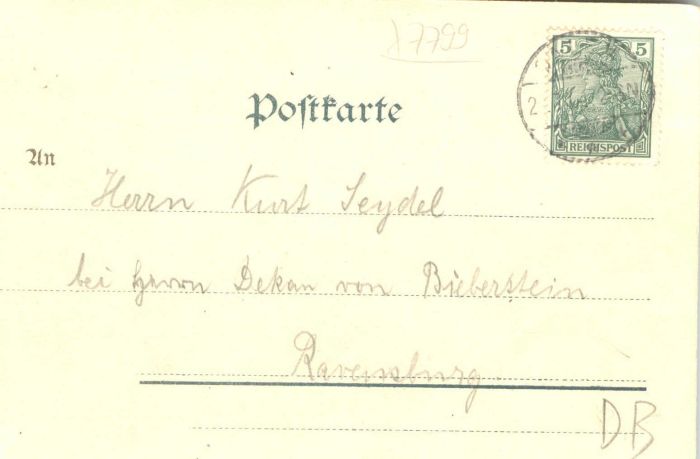 17799
5 5
REICHSPOST
Postkarte
An
Herrn Kurt Seydel
bei Herrn Dekan von Bieberstein
Ravensburg
DB